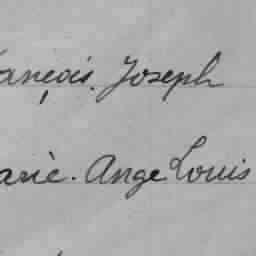 ançois. Joseph
arie. Ange Louis